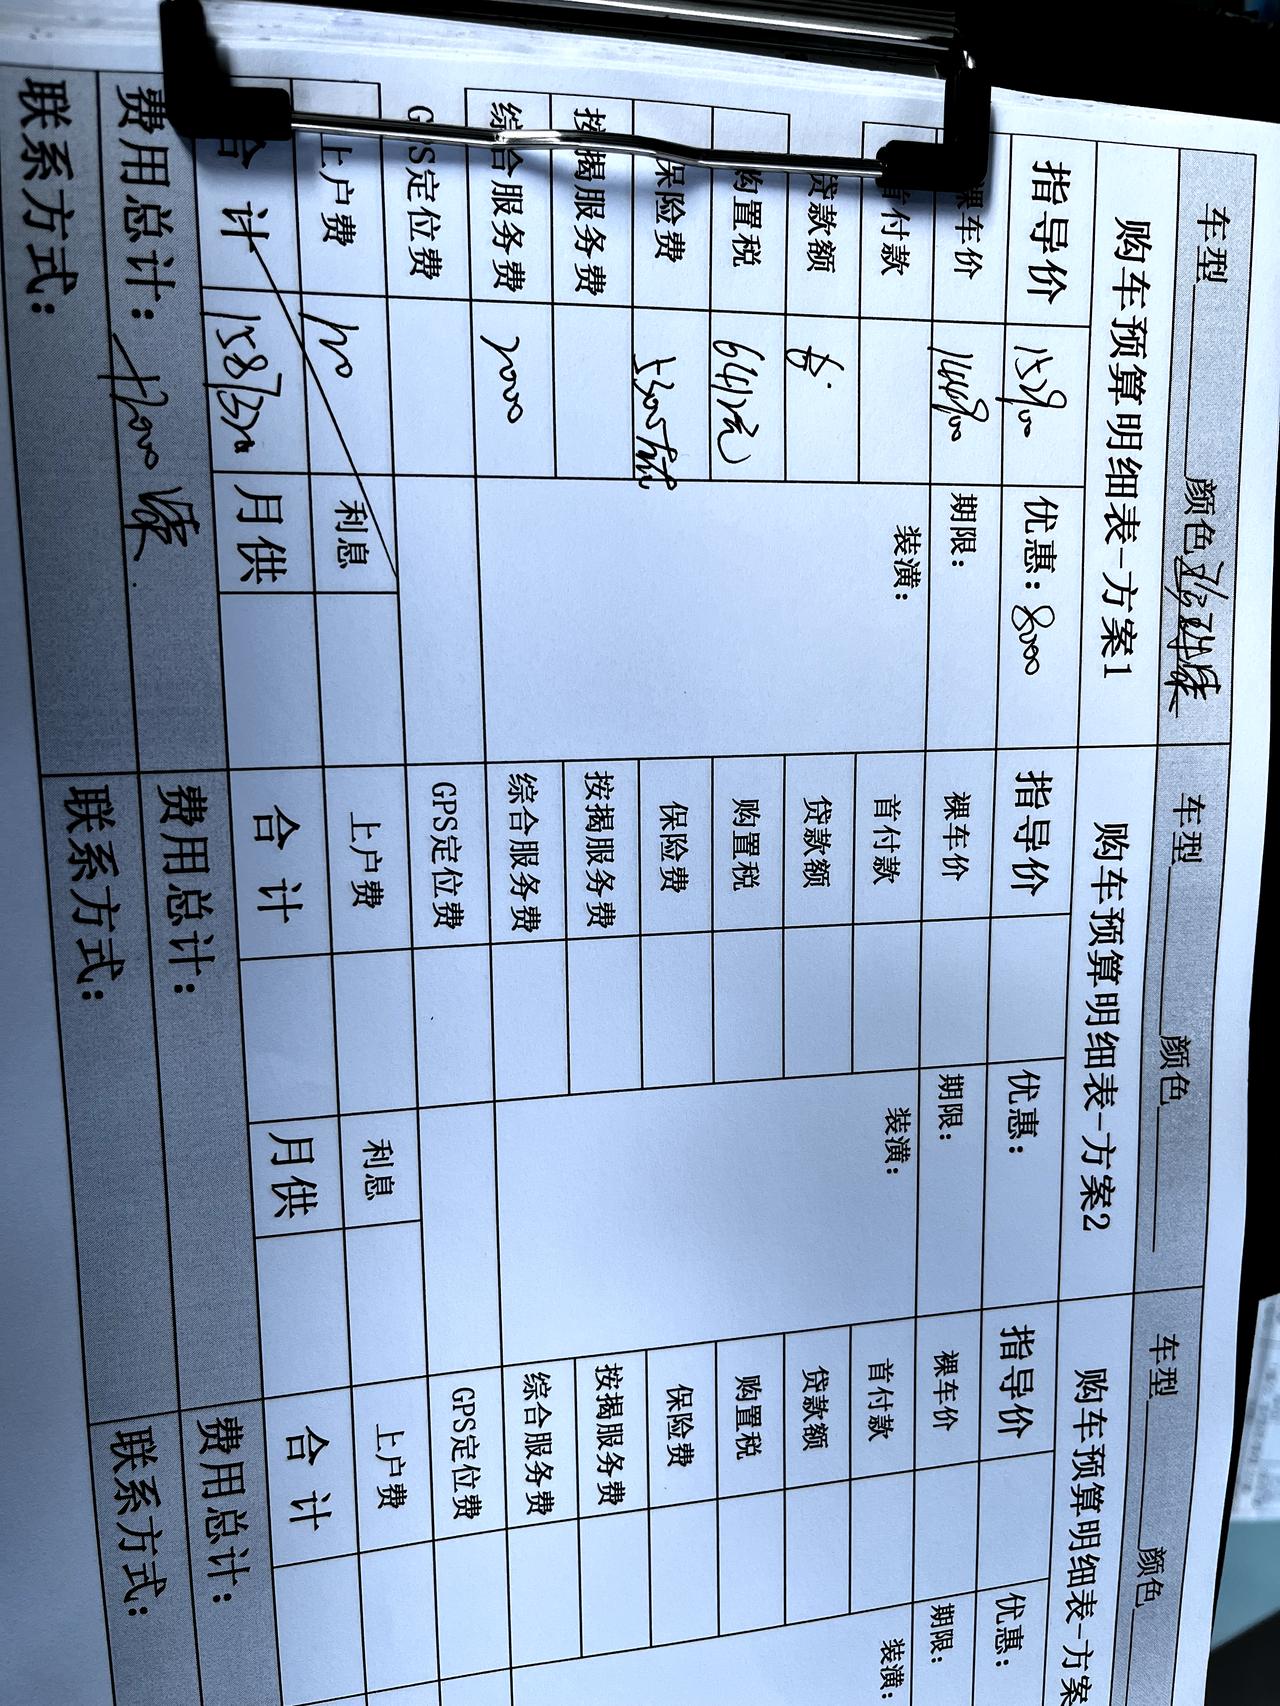 车型 颜色
购车预算明细表-方案1
指导价 152900 优惠: 8000
裸车价 144900 期限:
首付款 装潢:
贷款额
购置税 6412元
保险费
按揭服务费
综合服务费 2000
GPS定位费
上户费 利息
合 计 月供
费用总计:
联系方式:
车型 颜色
购车预算明细表-方案2
指导价 优惠:
裸车价 期限:
首付款 装潢:
贷款额
购置税
保险费
按揭服务费
综合服务费
GPS定位费
上户费 利息
合 计 月供
费用总计:
联系方式:
车型 颜色
购车预算明细表-方案
指导价 优惠:
裸车价 期限:
首付款 装潢:
贷款额
购置税
保险费
按揭服务费
综合服务费
GPS定位费
上户费
合 计
费用总计:
联系方式: